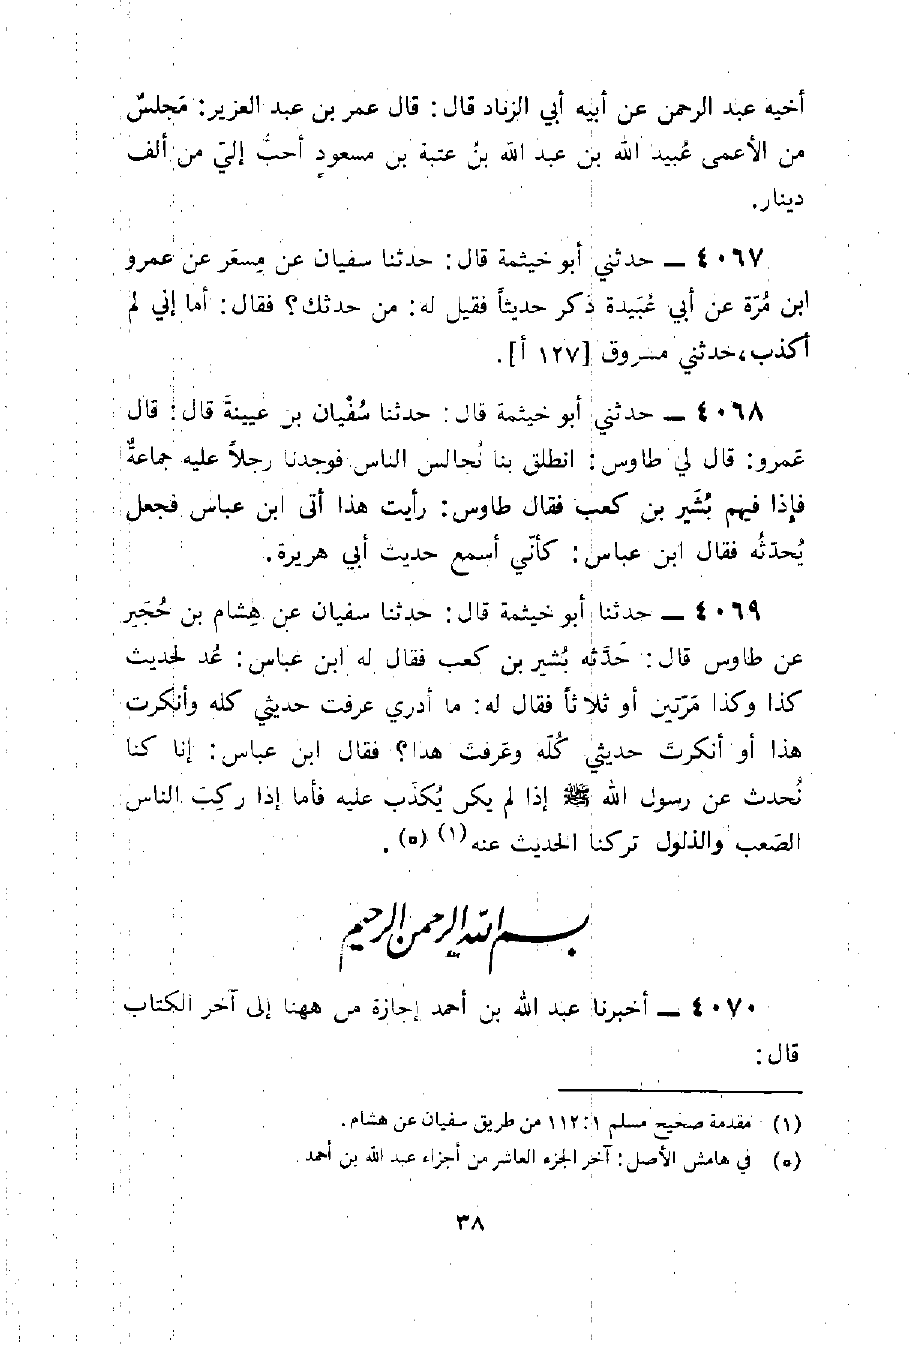 أخيه عبد الرحمن عن أبيه أبي الزناد قال: قال عمر بن عبد العزيز: مَجلسٌ
من الأعمى عُبيد الله بن عبد الله بنُ عتبة بن مسعودٍ أحبُّ إليّ من ألف
دينار.
٤٠٦٧ ـ حدثني أبو خيثمة قال: حدثنا سفيان عن مِسعَر عن عمرو
ابن مُرّة عن أبي عُبَيدة ذكر حديثاً فقيل له: من حدثك؟ فقال: أما إني لم
أكذب، حدثني مسروق [١٢٧ أ].
٤٠٦٨ ـ حدثني أبو خيثمة قال: حدثنا سُفْيان بن عيينةَ قال: قال
عَمرو: قال لي طاوس: انطلق بنا نُجالس الناس فوجدنا رجلاً عليه جماعةٌ
فإذا فيهم بُشَير بن كعب فقال طاوس: رأيت هذا أتى ابن عباس فجعل
يُحدثُه فقال ابن عباس: كأنّي أسمع حديث أبي هريرة.
٤٠٦٩ ـ حدثنا أبو خيثمة قال: حدثنا سفيان عن هِشام بن حُجَير
عن طاوس قال: حَدَّثه بُشير بن كعب فقال له ابن عباس: عُد لحديث
كذا وكذا مَرّتين أو ثلاثاً فقال له: ما أدري عرفت حديثي كله وأنكرت
هذا أو أنكرتَ حديثي كُلّه وعَرفتَ هذا؟ فقال ابن عباس: إنا كنا
نُحدث عن رسول الله ﷺ إذا لم يكن يُكذَب عليه فأما إذا ركِبَ الناس
الصَعب والذلول تركنا الحديث عنه (١) (٥).
بسم الله الرحمن الرحيم
٤٠٧٠ ـ أخبرنا عبد الله بن أحمد إجازة من ههنا إلى آخر الكتاب
قال:
(١) مقدمة صحيح مسلم ١:١١٢ من طريق سفيان عن هشام.
(٥) في هامش الأصل: آخر الجزء العاشر من أجزاء عبد الله بن أحمد
٣٨